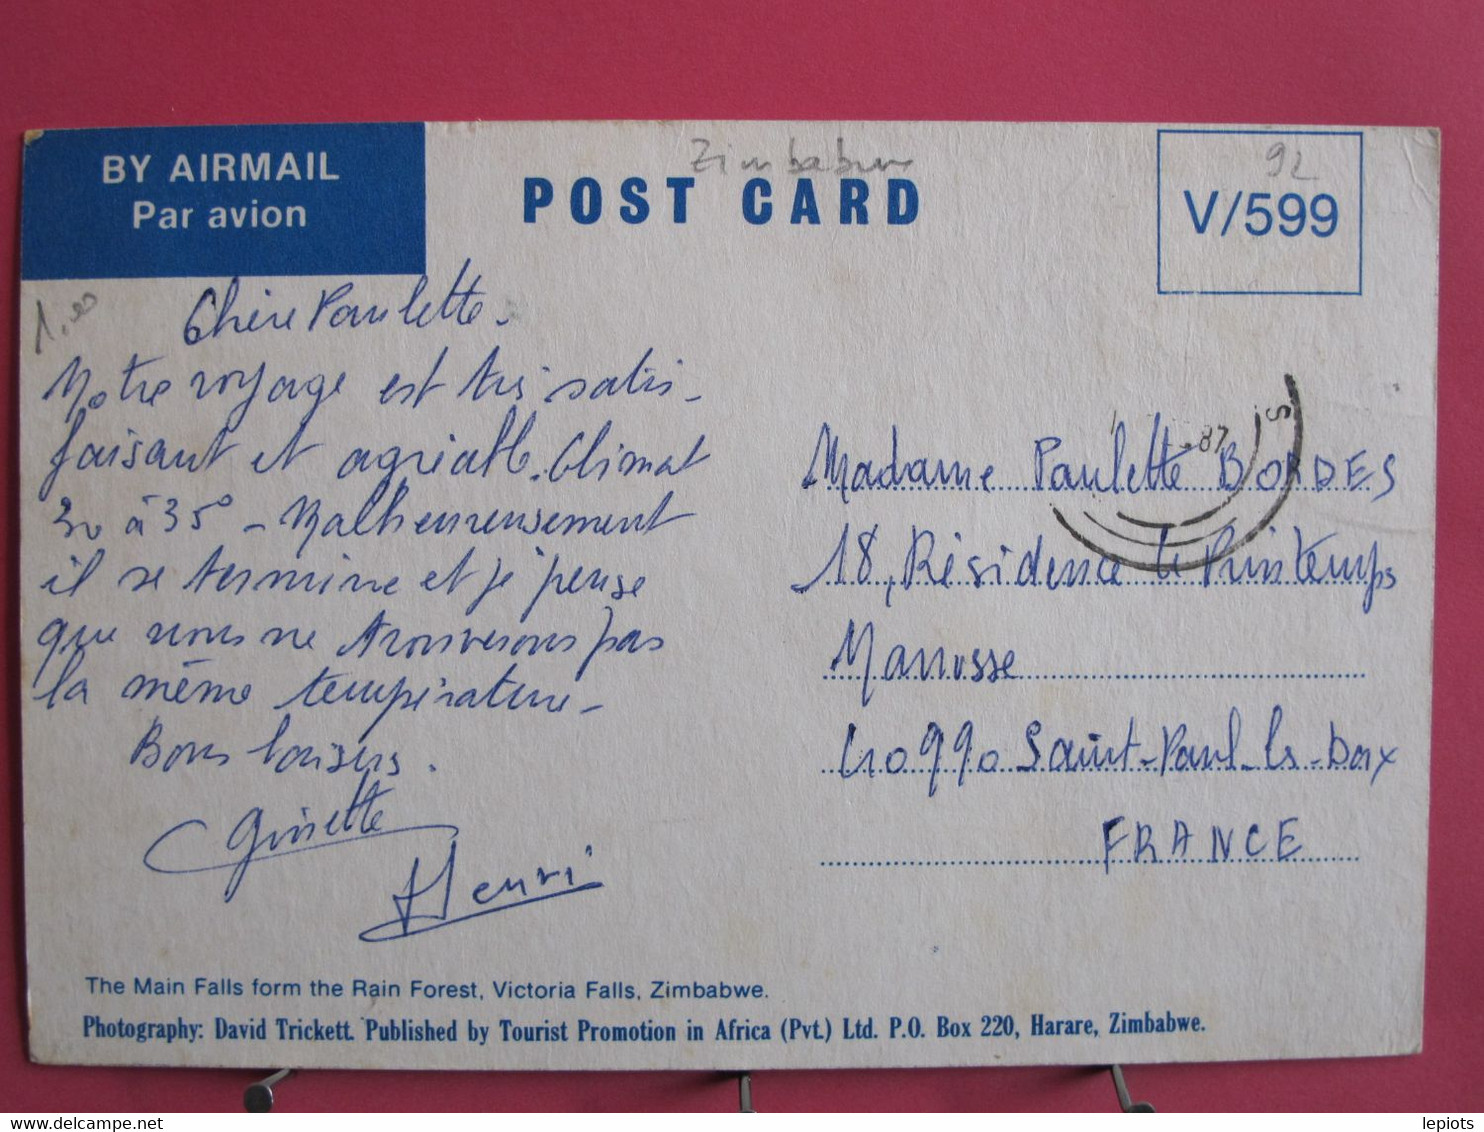 Zimbabwe
BY AIRMAIL
Par avion
POST CARD
92
V/599
1.00
Chère Paulette.
Notre voyage est très satis-
faisant et agréable. Climat
30 à 35° - Malheureusement
il se termine et je pense
que nous ne trouverons pas
la même température -
Bons baisers.
Ginette
Henri
87
S
Madame Paulette BORDES
18, Résidence le Printemps
Marusse
40990 Saint-Paul-les-Dax
FRANCE
The Main Falls form the Rain Forest, Victoria Falls, Zimbabwe.
Photography: David Trickett. Published by Tourist Promotion in Africa (Pvt.) Ltd. P.O. Box 220, Harare, Zimbabwe.
lepiots
delcampe.net